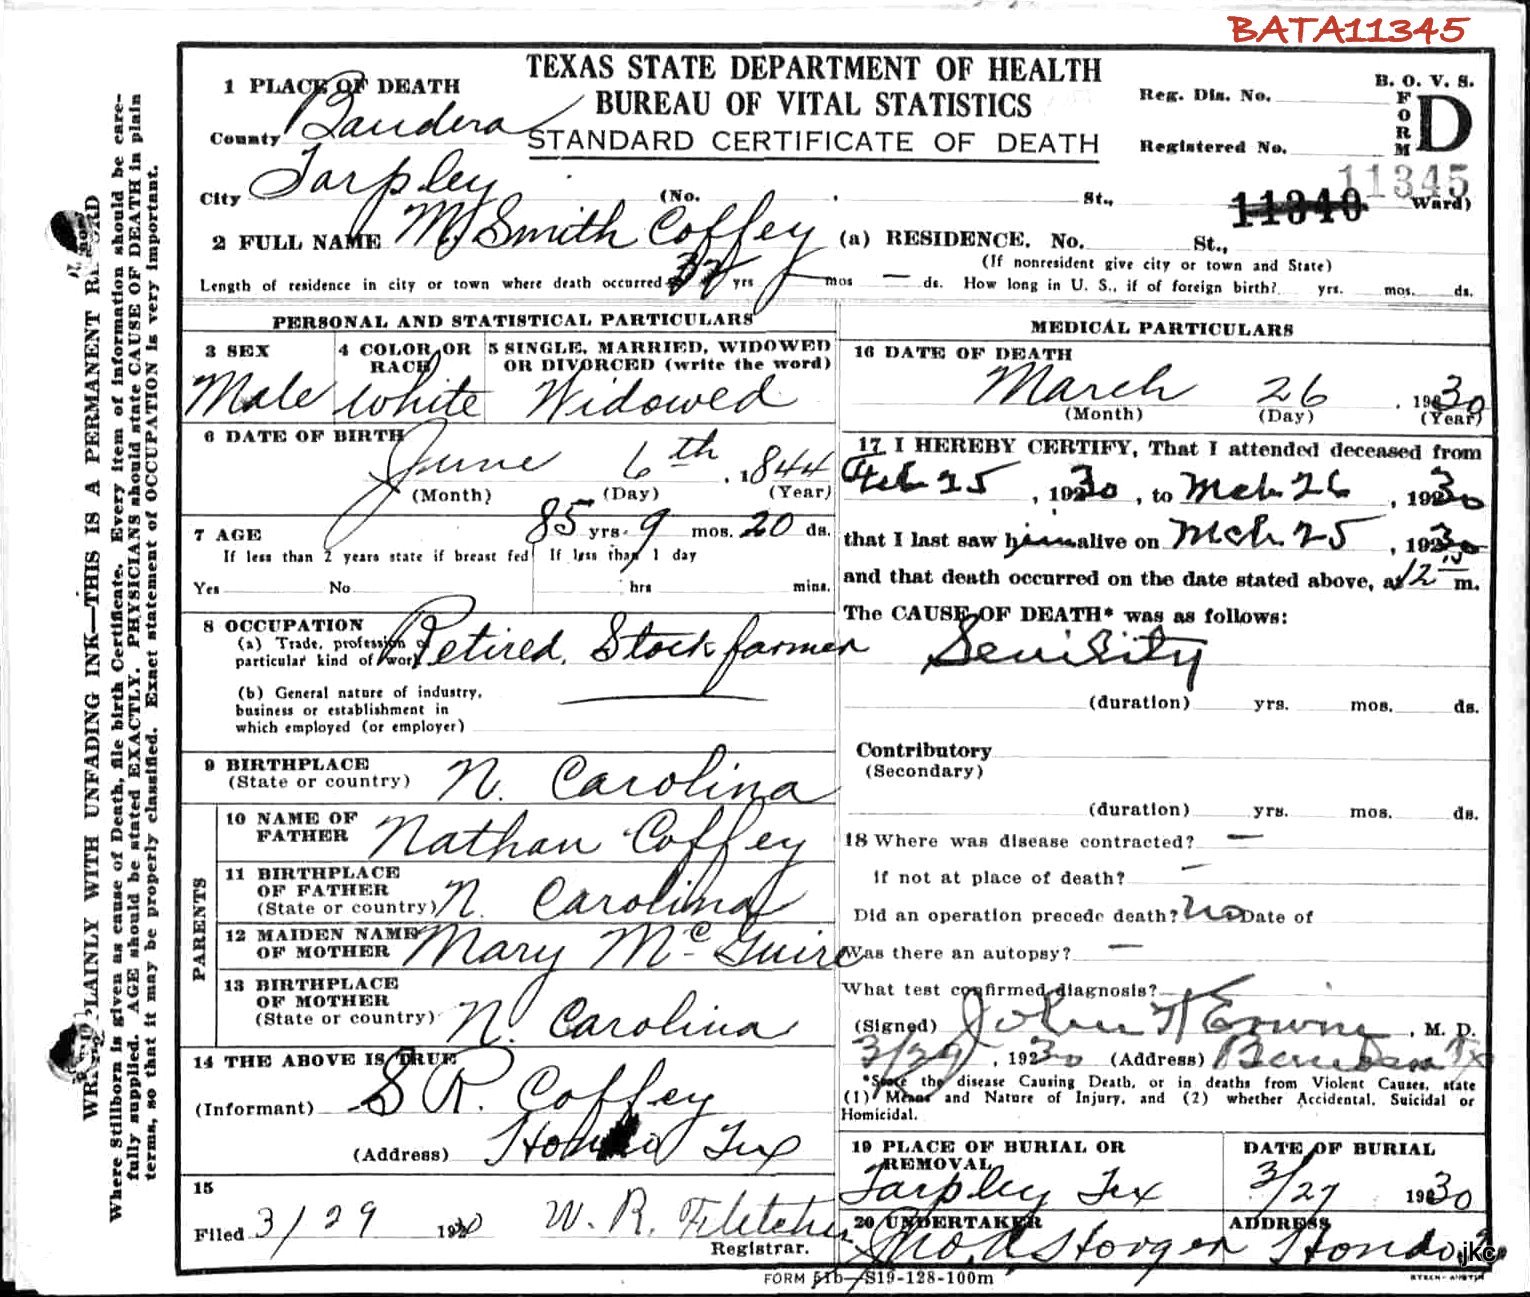 BATA11345
TEXAS STATE DEPARTMENT OF HEALTH
BUREAU OF VITAL STATISTICS
STANDARD CERTIFICATE OF DEATH
B. O. V. S.
FORM D
Reg. Dis. No.
Registered No.
11345
11340
1 PLACE OF DEATH
County Bandera
City Tarpley (No. St., Ward)
2 FULL NAME M. Smith Coffey (a) RESIDENCE. No. St.,
(If nonresident give city or town and State)
Length of residence in city or town where death occurred yrs — mos — ds. How long in U. S., if of foreign birth? yrs. mos. ds.
PERSONAL AND STATISTICAL PARTICULARS
3 SEX
Male
4 COLOR OR RACE
White
5 SINGLE, MARRIED, WIDOWED
OR DIVORCED (write the word)
Widowed
6 DATE OF BIRTH
June 6th, 1844
(Month) (Day) (Year)
7 AGE 85 yrs. 9 mos. 20 ds.
If less than 2 years state if breast fed If less than 1 day
Yes No hrs mins.
8 OCCUPATION
(a) Trade, profession or
particular kind of work Retired. Stock farmer
(b) General nature of industry,
business or establishment in
which employed (or employer)
9 BIRTHPLACE
(State or country) N. Carolina
PARENTS
10 NAME OF
FATHER Nathan Coffey
11 BIRTHPLACE
OF FATHER
(State or country) N. Carolina
12 MAIDEN NAME
OF MOTHER Mary McGuire
13 BIRTHPLACE
OF MOTHER
(State or country) N. Carolina
14 THE ABOVE IS TRUE
(Informant) S R. Coffey
(Address) Hondo Tex
15
Filed 3/29 1930 W. R. Fletcher
Registrar.
MEDICAL PARTICULARS
16 DATE OF DEATH
March 26, 1930
(Month) (Day) (Year)
17 I HEREBY CERTIFY, That I attended deceased from
Feb 25, 1930, to Mch 26, 1930
that I last saw him alive on Mch 25, 1930
and that death occurred on the date stated above, at 12 m.
The CAUSE OF DEATH* was as follows:
Senility
(duration) yrs. mos. ds.
Contributory
(Secondary)
(duration) yrs. mos. ds.
18 Where was disease contracted? —
if not at place of death? —
Did an operation precede death? No Date of
Was there an autopsy? —
What test confirmed diagnosis?
(Signed) John Erwin, M. D.
3/29, 1930 (Address) Bandera Tx
*State the disease Causing Death, or in deaths from Violent Causes, state
(1) Means and Nature of Injury, and (2) whether Accidental, Suicidal or
Homicidal.
19 PLACE OF BURIAL OR
REMOVAL
Tarpley Tex
DATE OF BURIAL
3/27 1930
20 UNDERTAKER
Jno. A. Horger
ADDRESS
Hondo
jkc
FORM 51b—S19-128-100m
WRITE PLAINLY WITH UNFADING INK—THIS IS A PERMANENT RECORD
Where Stillborn is given as cause of Death, file birth Certificate. Every item of information should be care-
fully supplied. AGE should be stated EXACTLY. PHYSICIANS should state CAUSE OF DEATH in plain
terms, so that it may be properly classified. Exact statement of OCCUPATION is very important.